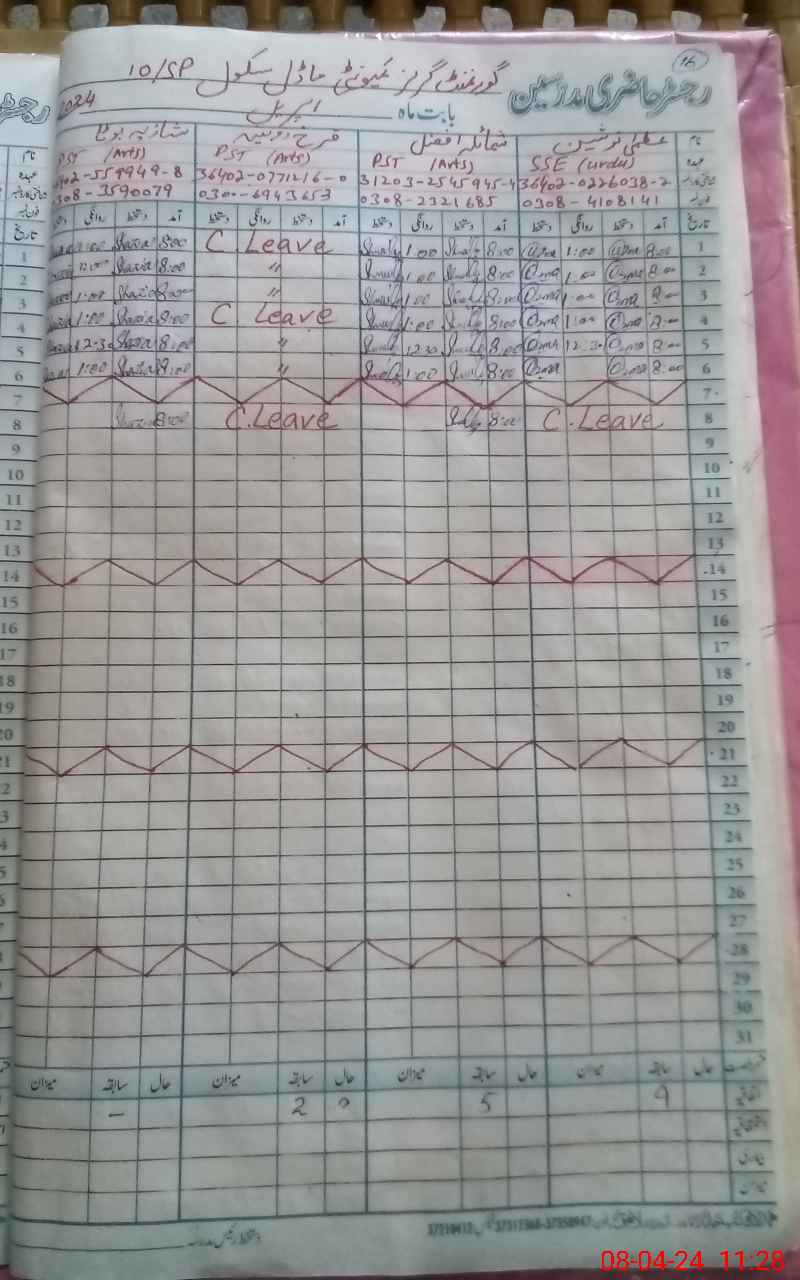 16
رجسٹر حاضری مدرسین
گورنمنٹ گرلز کمیونٹی ماڈل سکول 10/SP
بابت ماہ اپریل 2024
نام عظمیٰ نوشین شمائلہ افضل فرخ روبینہ شازیہ بوٹا
عہدہ SSE (urdu) PST (Arts) PST (Arts) PST (Arts)
36402-0226038-2 31203-2545945-4 36402-0771216-0 402-559949-8
0308-4108141 0308-2321685 0300-6943653 308-3590079
تاریخ آمد دستخط روانگی دستخط آمد دستخط روانگی دستخط آمد دستخط روانگی دستخط آمد دستخط روانگی
1 8:00 Uzma 1:00 Uzma 8:00 1:00 C Leave 8:00 Shazia 1:00
2 8:00 Uzma 1:00 Uzma 8:00 1:00 " 8:00 Shazia 12:00
3 8:00 Uzma 1:00 Uzma 8:00 1:00 " 8:00 Shazia 1:00
4 8:00 Uzma 1:00 Uzma 8:00 1:00 C Leave 8:00 Shazia 1:00
5 8:00 Uzma 12:30 Uzma 8:00 12:30 " 8:00 Shazia 12:30
6 8:00 Uzma Uzma 8:00 1:00 " 8:00 Shazia 1:00
7
8 C.Leave 8:00 C.Leave 8:00 Shazia
9
10
11
12
13
14
15
16
17
18
19
20
21
22
23
24
25
26
27
28
29
30
31
حال سابقہ میزان حال سابقہ میزان حال سابقہ میزان حال سابقہ میزان
اتفاقیہ 9 5 0 2 –
بیماری
میزان
دستخط رئیس مدرسہ
08-04-24 11:28